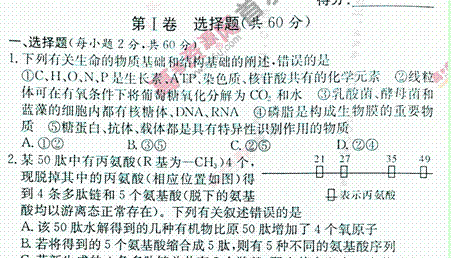 得分:
第Ⅰ卷 选择题(共60分)
一、选择题(每小题2分,共60分)
1.下列有关生命的物质基础和结构基础的阐述,错误的是
①C、H、O、N、P是生长素、ATP、染色质、核苷酸共有的化学元素 ②线粒
体可在有氧条件下将葡萄糖氧化分解为CO₂和水 ③乳酸菌、酵母菌和
蓝藻的细胞内都有核糖体、DNA、RNA ④磷脂是构成生物膜的重要物
质 ⑤糖蛋白、抗体、载体都是具有特异性识别作用的物质
A.①② B.③⑤ C.②⑤ D.②④
2.某50肽中有丙氨酸(R基为—CH₃)4个,
21 27 35 49
现脱掉其中的丙氨酸(相应位置如图)得
到4条多肽链和5个氨基酸(脱下的氨基
表示丙氨酸
酸均以游离态正常存在)。下列有关叙述错误的是
A.该50肽水解得到的几种有机物比原50肽增加了4个氧原子
B.若将得到的5个氨基酸缩合成5肽,则有5种不同的氨基酸序列